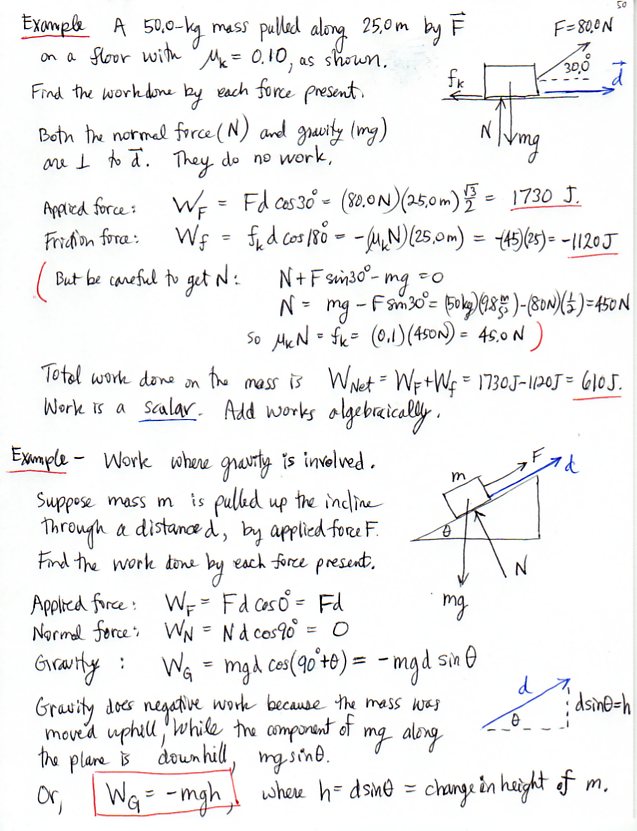 50
Example A 50.0-kg mass pulled along 25.0 m by F⃗
on a floor with μk = 0.10, as shown.
Find the work done by each force present.
F = 80.0 N
30.0°
fk
d⃗
N
mg
Both the normal force (N) and gravity (mg)
are ⊥ to d⃗. They do no work.
Applied force: W_F = Fd cos30° = (80.0N)(25.0m) √3/2 = 1730 J.
Friction force: W_f = fk d cos180° = -(μkN)(25.0m) = -(45)(25) = -1120 J
(But be careful to get N: N + F sin30° - mg = 0
N = mg - F sin30° = (50kg)(9.8 m/s²) - (80N)(1/2) = 450N
so μkN = fk = (0.1)(450N) = 45.0 N)
Total work done on the mass is W_Net = W_F + W_f = 1730J - 1120J = 610 J.
Work is a scalar. Add works algebraically.
Example - Work where gravity is involved.
Suppose mass m is pulled up the incline
through a distance d, by applied force F.
Find the work done by each force present.
m
F
d
θ
N
mg
Applied force: W_F = Fd cos0° = Fd
Normal force: W_N = Nd cos90° = 0
Gravity : W_G = mgd cos(90°+θ) = -mgd sinθ
Gravity does negative work because the mass was
moved uphill, while the component of mg along
the plane is downhill, mg sinθ.
d
θ
dsinθ=h
Or, W_G = -mgh, where h = dsinθ = change in height of m.